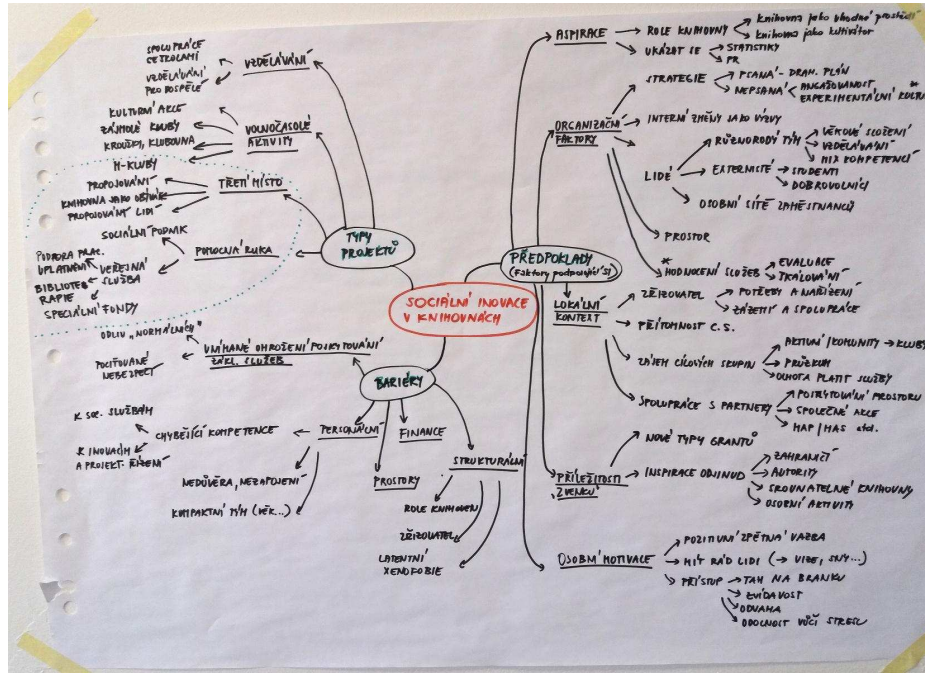 SOCIÁLNÍ INOVACE
V KNIHOVNÁCH
TYPY
PROJEKTŮ
VZDĚLÁVÁNÍ
SPOLUPRÁCE
SE ŠKOLAMI
VZDĚLÁVÁNÍ
PRO DOSPĚLÉ
VOLNOČASOVÉ
AKTIVITY
KULTURNÍ AKCE
ZÁJMOVÉ KLUBY
KROUŽKY, KLUBOVNA
M-KLUBY
TŘETÍ MÍSTO
PROPOJOVÁNÍ
KNIHOVNA JAKO OBÝVÁK
PROPOJOVÁNÍ LIDÍ
POMOCNÁ RUKA
SOCIÁLNÍ PODNIK
VEŘEJNÁ
SLUŽBA
PODPORA PRAC.
UPLATNĚNÍ
BIBLIOTE
RAPIE
SPECIÁLNÍ FONDY
BARIÉRY
VNÍMANÉ OHROŽENÍ POSKYTOVÁNÍ
ZÁKL. SLUŽEB
ODLIV „NORMÁLNÍCH“
POCIŤOVANÉ
NEBEZPEČÍ
PERSONÁLNÍ
CHYBĚJÍCÍ KOMPETENCE
K SOC. SLUŽBÁM
K INOVACÍM
A PROJEKT. ŘÍZENÍ
NEDŮVĚRA, NEZAPOJENÍ
KOMPAKTNÍ TÝM (VĚK...)
FINANCE
PROSTORY
STRUKTURÁLNÍ
ROLE KNIHOVEN
ZŘIZOVATEL
LATENTNÍ
XENOFOBIE
PŘEDPOKLADY
(Faktory podporující SI)
ASPIRACE
ROLE KNIHOVNY
knihovna jako vhodné prostředí
knihovna jako kultivátor
UKÁZAT SE
STATISTIKY
PR
ORGANIZAČNÍ
FAKTORY
STRATEGIE
PSANÁ - DRAM. PLÁN
NEPSANÁ
ANGAŽOVANOST
EXPERIMENTÁLNÍ
INTERNÍ ZMĚNY JAKO VÝZVY
LIDÉ
RŮZNORODÝ TÝM
VĚKOVÉ SLOŽENÍ
VZDĚLÁVÁNÍ
MIX KOMPETENCÍ
EXTERNISTÉ
STUDENTI
DOBROVOLNÍCI
OSOBNÍ SÍTĚ ZAMĚSTNANCŮ
PROSTOR
* HODNOCENÍ SLUŽEB
EVALUACE
ŠKÁLOVÁNÍ
LOKÁLNÍ
KONTEXT
ZŘIZOVATEL
POTŘEBY A NAŘÍZENÍ
ZÁZEMÍ A SPOLUPRÁCE
PŘÍTOMNOST C.S.
ZÁJEM CÍLOVÝCH SKUPIN
AKTIVNÍ KOMUNITY → KLUBY
PRŮZKUM
OCHOTA PLATIT SLUŽBY
SPOLUPRÁCE S PARTNERY
POSKYTOVÁNÍ PROSTORU
SPOLEČNÉ AKCE
MAP / MAS atd.
PŘÍLEŽITOSTI
ZVENKU
NOVÉ TYPY GRANTŮ
INSPIRACE ODJINUD
ZAHRANIČÍ
AUTORITY
SROVNATELNÉ KNIHOVNY
OSOBNÍ AKTIVITY
OSOBNÍ MOTIVACE
POZITIVNÍ ZPĚTNÁ VAZBA
MÍT RÁD LIDI (→ VIZE, SNY...)
PŘÍSTUP
TAH NA BRANKU
ZVÍDAVOST
ODVAHA
ODOLNOST VŮČI STRESU